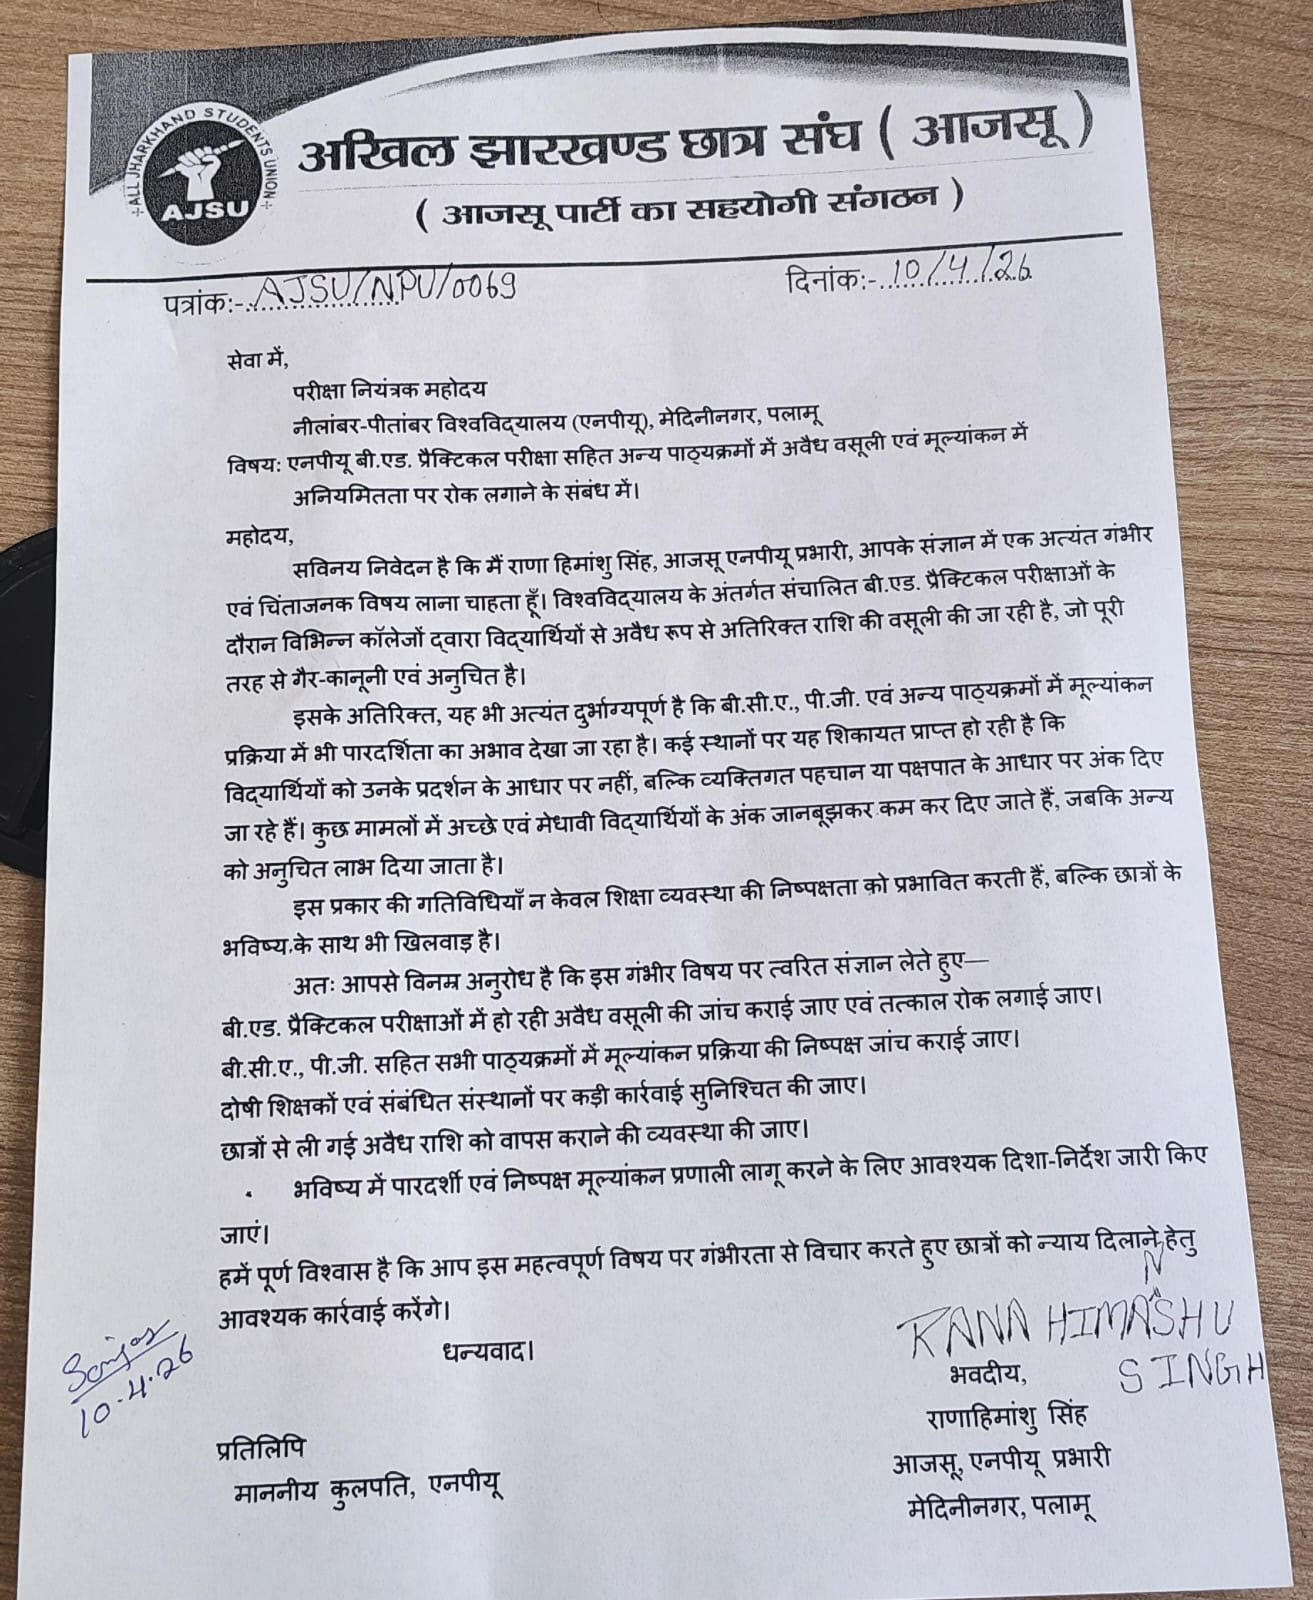 ALL JHARKHAND STUDENTS UNION
AJSU
अखिल झारखण्ड छात्र संघ ( आजसू )
( आजसू पार्टी का सहयोगी संगठन )
पत्रांक:- AJSU/NPU/0069
दिनांक:- 10/4/26
सेवा में,
परीक्षा नियंत्रक महोदय
नीलांबर-पीतांबर विश्वविद्यालय (एनपीयू), मेदिनीनगर, पलामू
विषय: एनपीयू बी.एड. प्रैक्टिकल परीक्षा सहित अन्य पाठ्यक्रमों में अवैध वसूली एवं मूल्यांकन में
अनियमितता पर रोक लगाने के संबंध में।
महोदय,
सविनय निवेदन है कि मैं राणा हिमांशु सिंह, आजसू एनपीयू प्रभारी, आपके संज्ञान में एक अत्यंत गंभीर
एवं चिंताजनक विषय लाना चाहता हूँ। विश्वविद्यालय के अंतर्गत संचालित बी.एड. प्रैक्टिकल परीक्षाओं के
दौरान विभिन्न कॉलेजों द्वारा विद्यार्थियों से अवैध रूप से अतिरिक्त राशि की वसूली की जा रही है, जो पूरी
तरह से गैर-कानूनी एवं अनुचित है।
इसके अतिरिक्त, यह भी अत्यंत दुर्भाग्यपूर्ण है कि बी.सी.ए., पी.जी. एवं अन्य पाठ्यक्रमों में मूल्यांकन
प्रक्रिया में भी पारदर्शिता का अभाव देखा जा रहा है। कई स्थानों पर यह शिकायत प्राप्त हो रही है कि
विद्यार्थियों को उनके प्रदर्शन के आधार पर नहीं, बल्कि व्यक्तिगत पहचान या पक्षपात के आधार पर अंक दिए
जा रहे हैं। कुछ मामलों में अच्छे एवं मेधावी विद्यार्थियों के अंक जानबूझकर कम कर दिए जाते हैं, जबकि अन्य
को अनुचित लाभ दिया जाता है।
इस प्रकार की गतिविधियाँ न केवल शिक्षा व्यवस्था की निष्पक्षता को प्रभावित करती हैं, बल्कि छात्रों के
भविष्य के साथ भी खिलवाड़ है।
अतः आपसे विनम्र अनुरोध है कि इस गंभीर विषय पर त्वरित संज्ञान लेते हुए—
बी.एड. प्रैक्टिकल परीक्षाओं में हो रही अवैध वसूली की जांच कराई जाए एवं तत्काल रोक लगाई जाए।
बी.सी.ए., पी.जी. सहित सभी पाठ्यक्रमों में मूल्यांकन प्रक्रिया की निष्पक्ष जांच कराई जाए।
दोषी शिक्षकों एवं संबंधित संस्थानों पर कड़ी कार्रवाई सुनिश्चित की जाए।
छात्रों से ली गई अवैध राशि को वापस कराने की व्यवस्था की जाए।
• भविष्य में पारदर्शी एवं निष्पक्ष मूल्यांकन प्रणाली लागू करने के लिए आवश्यक दिशा-निर्देश जारी किए
जाएं।
हमें पूर्ण विश्वास है कि आप इस महत्वपूर्ण विषय पर गंभीरता से विचार करते हुए छात्रों को न्याय दिलाने हेतु
आवश्यक कार्रवाई करेंगे।
धन्यवाद।
RANA HIMANSHU
SINGH
भवदीय,
राणाहिमांशु सिंह
आजसू, एनपीयू प्रभारी
मेदिनीनगर, पलामू
10-4-26
प्रतिलिपि
माननीय कुलपति, एनपीयू